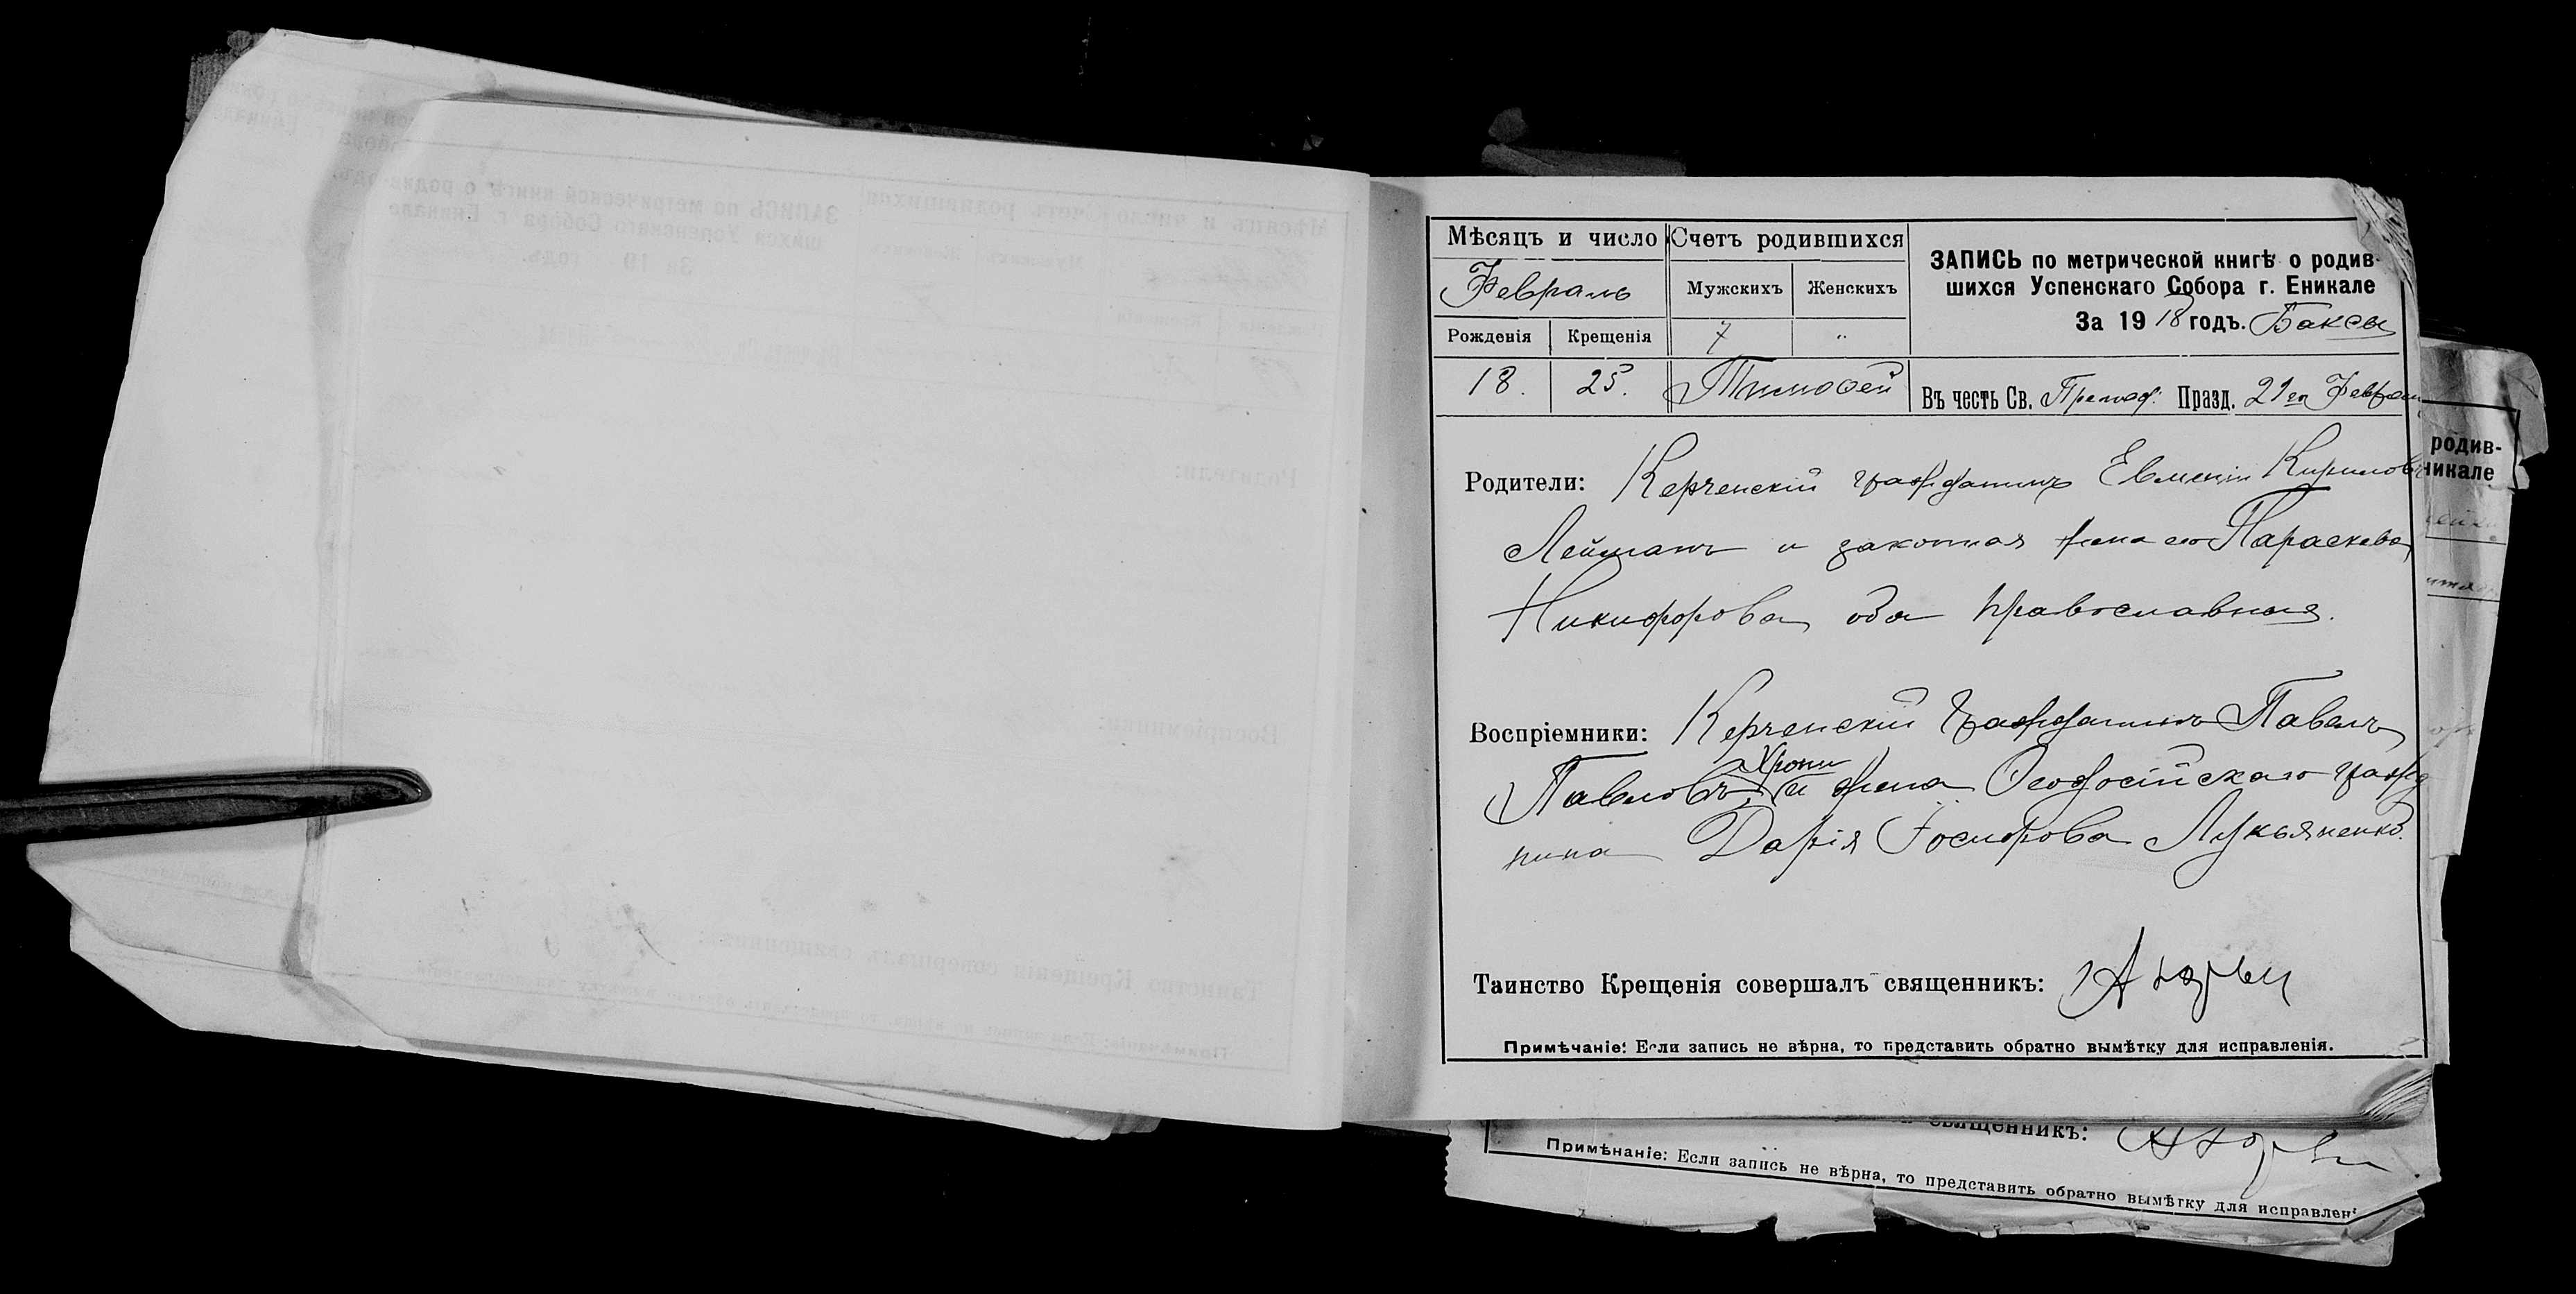 Мѣсяцъ и число
Счетъ родившихся
Февраль
Мужскихъ
Женскихъ
Рожденія
Крещенія
7
"
ЗАПИСЬ по метрической книгѣ о родив-
шихся Успенскаго Собора г. Еникале
За 1918 годъ. Баксы
18.
25.
Тимофей
Въ честь Св. Препод: Празд. 21го Февраля
Родители: Керченскій гражданинъ Евменій Кириловъ
Лейманъ и законная жена его Параскева
Никифорова оба православныя.
Воспріемники: Керченскій гражданинъ Павелъ
Павловъ Хрони и жена Ѳеодосійскаго гражд
нина Дарія Іосифова Лукьяненко.
Таинство Крещенія совершалъ священникъ:
Примѣчаніе: Если запись не вѣрна, то представить обратно вымѣтку для исправленія.
родив-
никале
священникъ:
Примѣчаніе: Если запись не вѣрна, то представить обратно вымѣтку для исправлені